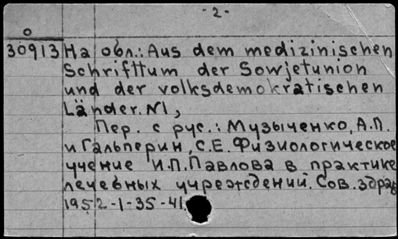 - 2 -
0
30913 На обл.: Aus dem medizinischen
Schrifttum der Sowjetunion
und der volksdemokratischen
Länder. N1,
Пер. с рус.: Музыченко, А.П.
и Гальперин, С.Е. Физиологическое
учение И.П. Павлова в практике
лечебных учреждений. Сов. здрав
1952-1-35-41.